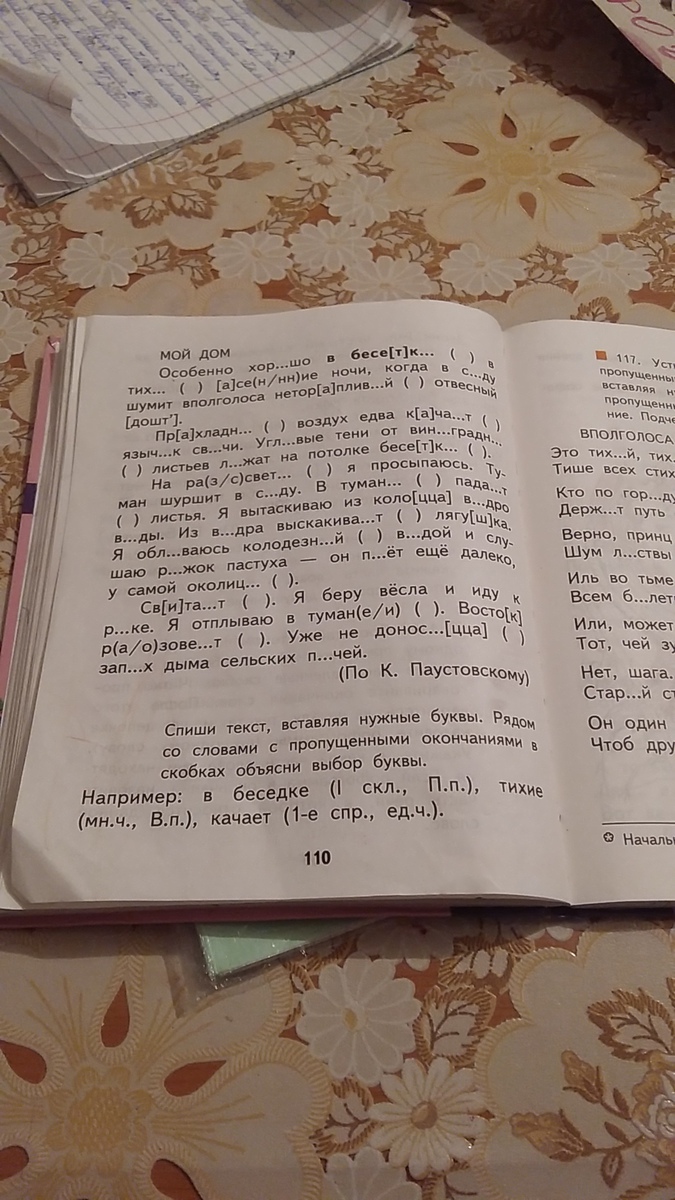 МОЙ ДОМ
Особенно хор...шо в бесе[т]к... ( ) в
тих... ( ) [а]се(н/нн)ие ночи, когда в с...ду
шумит вполголоса нетор[а]плив...й ( ) отвесный
[дошт'].
Пр[а]хладн... ( ) воздух едва к[а]ча...т ( )
языч...к св...чи. Угл...вые тени от вин...градн...
( ) листьев л...жат на потолке бесе[т]к... ( ).
На ра(з/с)свет... ( ) я просыпаюсь. Ту-
ман шуршит в с...ду. В туман... ( ) пада...т
( ) листья. Я вытаскиваю из коло[цца] в...дро
в...ды. Из в...дра выскакива...т ( ) лягу[ш]ка.
Я обл...ваюсь колодезн...й ( ) в...дой и слу-
шаю р...жок пастуха — он п...ёт ещё далеко,
у самой околиц... ( ).
Св[и]та...т ( ). Я беру вёсла и иду к
р...ке. Я отплываю в туман(е/и) ( ). Восто[к]
р(а/о)зове...т ( ). Уже не донос...[цца] ( )
зап...х дыма сельских п...чей.
(По К. Паустовскому)
Спиши текст, вставляя нужные буквы. Рядом
со словами с пропущенными окончаниями в
скобках объясни выбор буквы.
Например: в беседке (I скл., П.п.), тихие
(мн.ч., В.п.), качает (1-е спр., ед.ч.).
110
117. Уст
пропущенны
вставляя н
пропущенн
ние. Подче
ВПОЛГОЛОСА
Это тих...й, тих.
Тише всех стих
Кто по гор...ду
Держ...т путь
Верно, принц
Шум л...ствы
Иль во тьме
Всем б...лет
Или, может
Тот, чей зу
Нет, шага.
Стар...й ст
Он один
Чтоб дру
Началь